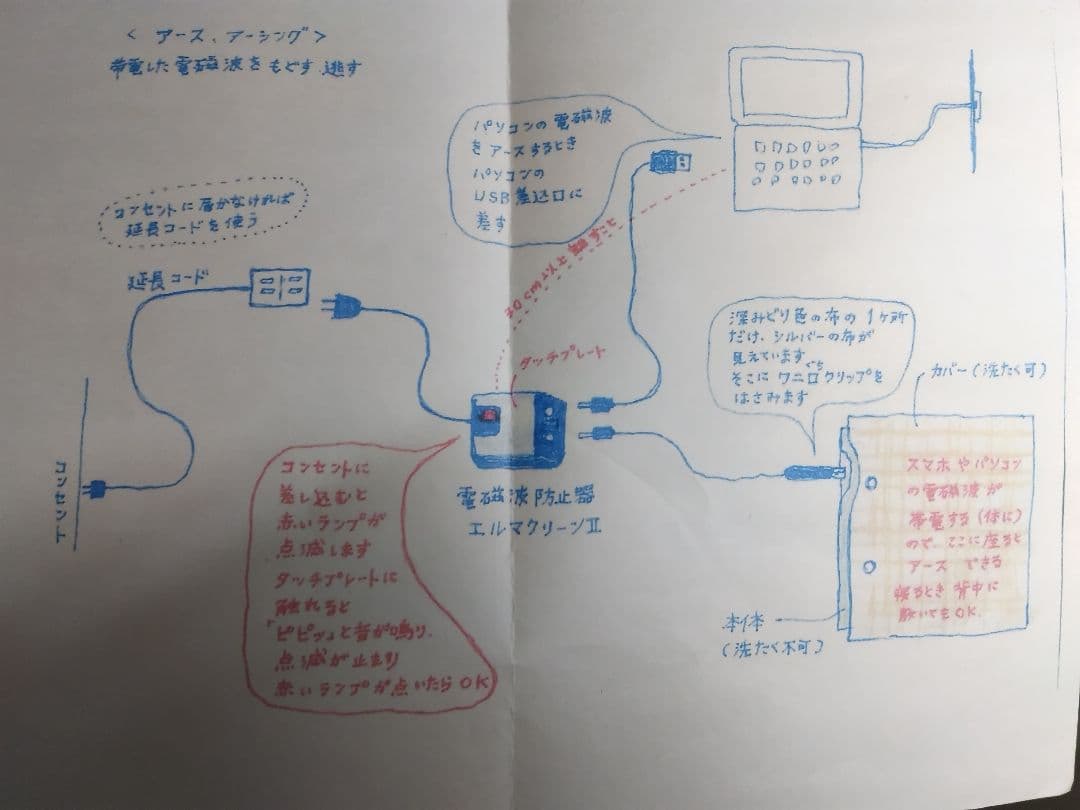 < アース、アーシング >
帯電した電磁波をもどす 逃す
パソコンの電磁波
をアースするとき
パソコンの
USB差込口に
差す
コンセントに届かなければ
延長コードを使う
延長コード
タッチプレート
深みどり色の布の1ヶ所
だけ、シルバーの布が
見えています
そこにワニ口クリップを
ぐち
はさみます
カバー(洗たく可)
コンセント
コンセントに
差し込むと
赤いランプが
点滅します
タッチプレートに
触れると
「ピピッ」と音が鳴り、
点滅が止まり
赤いランプが点いたらOK
電磁波防止器
エルマクリーンⅡ
スマホやパソコン
の電磁波が
帯電する(体に)
ので、ここに座ると
アースできる
寝るとき背中に
敷いてもOK
本体
(洗たく不可)